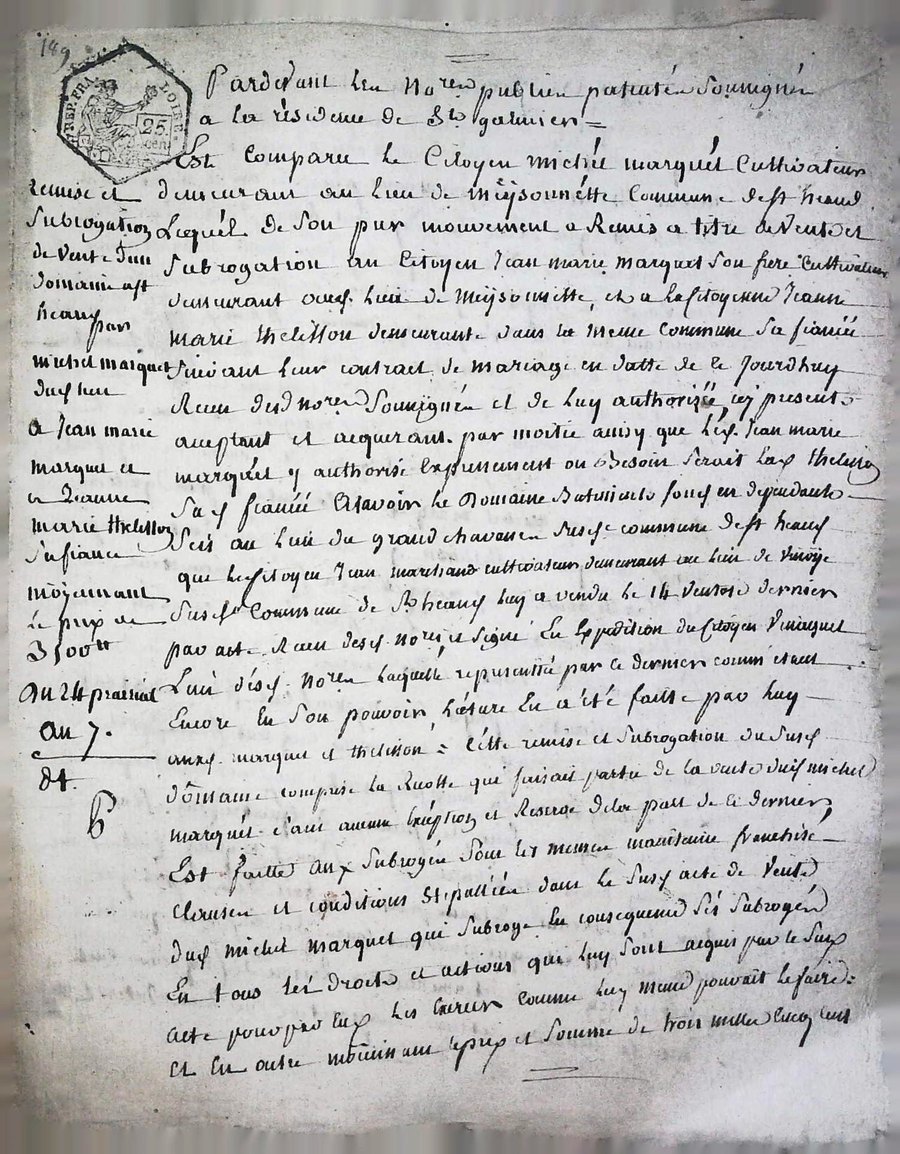 189
REP. FRA. LOIRE.
25
cen
Pardevant Les Nores publics patentés Soussignés
a la résidence de St galmier =
Est Comparu le Citoyen michel marquet Cultivateur
demeurant au lieu de meÿsonnette Commune de st heand
Lequel de Son pur mouvement a Remis a titre de Vente et
Subrogation au Citoyen Jean marie marquet Son frere Cultivateur
demeurant aud. lieu de meÿsonnette, et a La Citoyenne Jeanne
marie thelisson demeurante dans la meme Commune Sa fiancée
Suivant Leur contract de mariage en datte de ce Jourdhuy
Receu desd nores Soussignés et de Luy authorisée, icy present
acceptant et acquerant par moitié ainsy que led. Jean marie
marquet y authorise Expressement ou Besoin Seroit lad thelisson
Sad fiancée Asavoir Le Domaine Batiments fonds en dependants
Scis au Lieu du grand chavanen Susd. commune de st heand
que Le Citoyen Jean marchand cultivateur demeurant au lieu de
Susd. Commune de St heand Luy a vendu le 14 ventose dernier
par acte Receu desd. nores, et Signé En Expedition du Citoyen
L'un desd. nores Laquelle representée par ce dernier comme etant
Encore En Son pouvoir, Lecture En a été faitte par Luy
auxd. marquet et thelisson = Cette remise et Subrogation du Susd
domaine comprise la qui faisait partie de la vente dud michel
marquet Sans aucune Exeption et Reserve de la part de ce dernier,
Est faitte aux Subrogés Sous les memes franchise
Clauses et conditions Stipullées dans le Susd acte de Vente
dud michel marquet qui Subroge En consequence Ses Subrogés
En tous Ses droits et actions qui Luy Sont acquis par le Susd
acte pour par Eux Les Exercer comme Luy meme pouvait le faire.
Et En outre moyennant le prix et Somme de trois mille Cinq Cent
remise et
Subrogation
de Vente d'un
domaine a st
heand
par
michel marquet
dud lieu
a Jean marie
marquet et
a Jeanne
marie thelisson
Sa fiancé
moyennant
Le prix de
3500tt
du 24 prairial
an 7.
84.